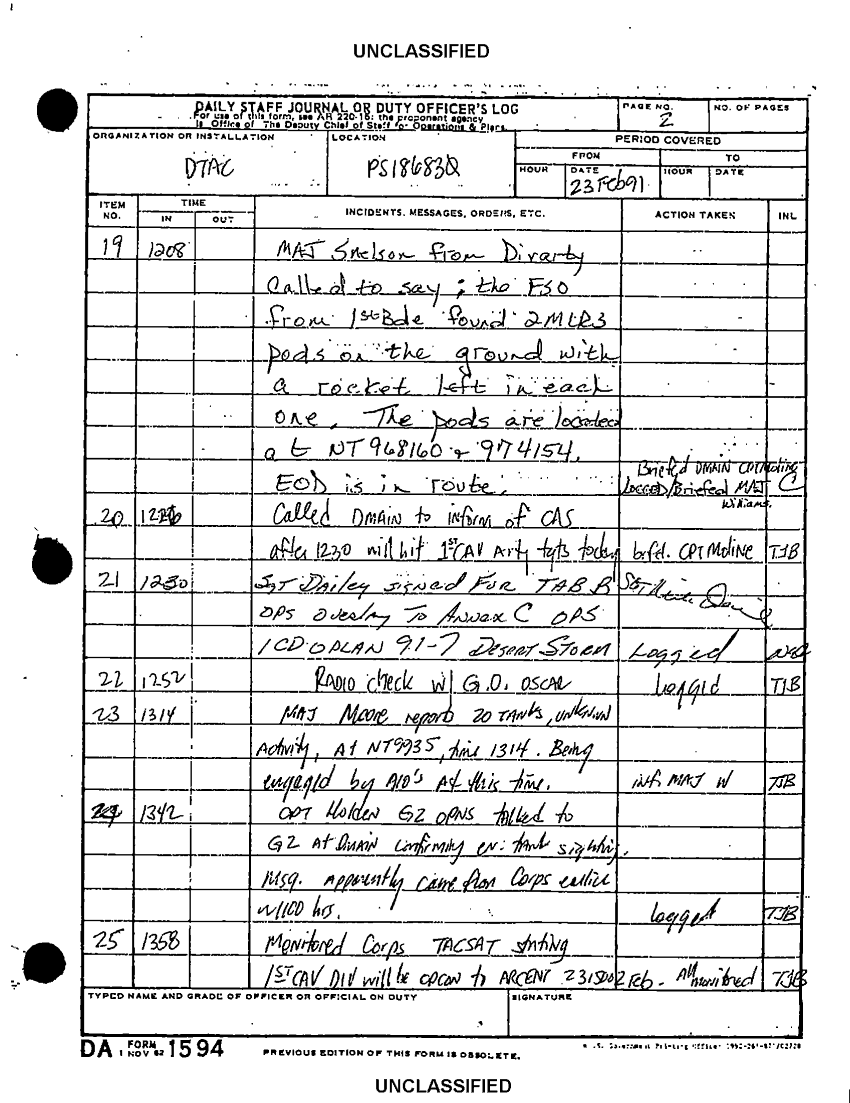 UNCLASSIFIED
DAILY STAFF JOURNAL OR DUTY OFFICER'S LOG
For use of this form, see AR 220-15; the proponent agency
is Office of The Deputy Chief of Staff for Operations & Plans.
PAGE NO.
2
NO. OF PAGES
ORGANIZATION OR INSTALLATION
DTAC
LOCATION
PS18683Q
PERIOD COVERED
FROM
TO
HOUR
DATE
23 Feb 91
HOUR
DATE
ITEM NO.
TIME
IN
OUT
INCIDENTS, MESSAGES, ORDERS, ETC.
ACTION TAKEN
INL
19 1208 MAJ Snelson from Divarty
Called to say; the FSO
from 1st Bde found 2 MLRS
pods on the ground with
a rocket left in each
one. The pods are located
at NT 968160 & 974154.
EOD is in route. Briefed DMAIN CPT Moline
Logged/Briefed MAJ Williams. C
20 Called DMAIN to inform of CAS
after 1230 will hit 1ST CAV Arty tgts today brfd. CPT Moline TJB
21 1230 Sgt Dailey signed FOR TAB B SGT
OPS overlay TO ANNEX C OPS
1CD OPLAN 91-7 DESERT STORM Logged
22 1252 RADIO check w/ G.O. OSCAR Loggd TJB
23 1314 MAJ Moore reports 20 TANKS, UNKNWN
Activity, At NT9935, time 1314. Being
engaged by A10's At this time. inf. MAJ W TJB
24 1342 CPT Holden G2 OPNS talked to
G2 At Dmain confirming en. tank sighting.
Msg. Apparently came from Corps earlier
1100 hrs. Logged TJB
25 1358 Monitored Corps TACSAT stating
1ST CAV DIV will be OPCON to ARCENT 231500Z Feb. - All monitored TJB
TYPED NAME AND GRADE OF OFFICER OR OFFICIAL ON DUTY
SIGNATURE
DA FORM 1 NOV 62 1594
PREVIOUS EDITION OF THIS FORM IS OBSOLETE.
UNCLASSIFIED